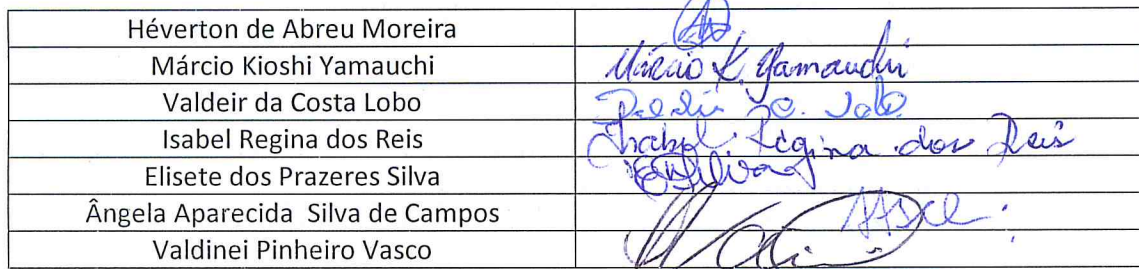 Héverton de Abreu Moreira
Márcio Kioshi Yamauchi Márcio K. Yamauchi
Valdeir da Costa Lobo
Isabel Regina dos Reis Isabel Regina dos Reis
Elisete dos Prazeres Silva
Ângela Aparecida Silva de Campos
Valdinei Pinheiro Vasco